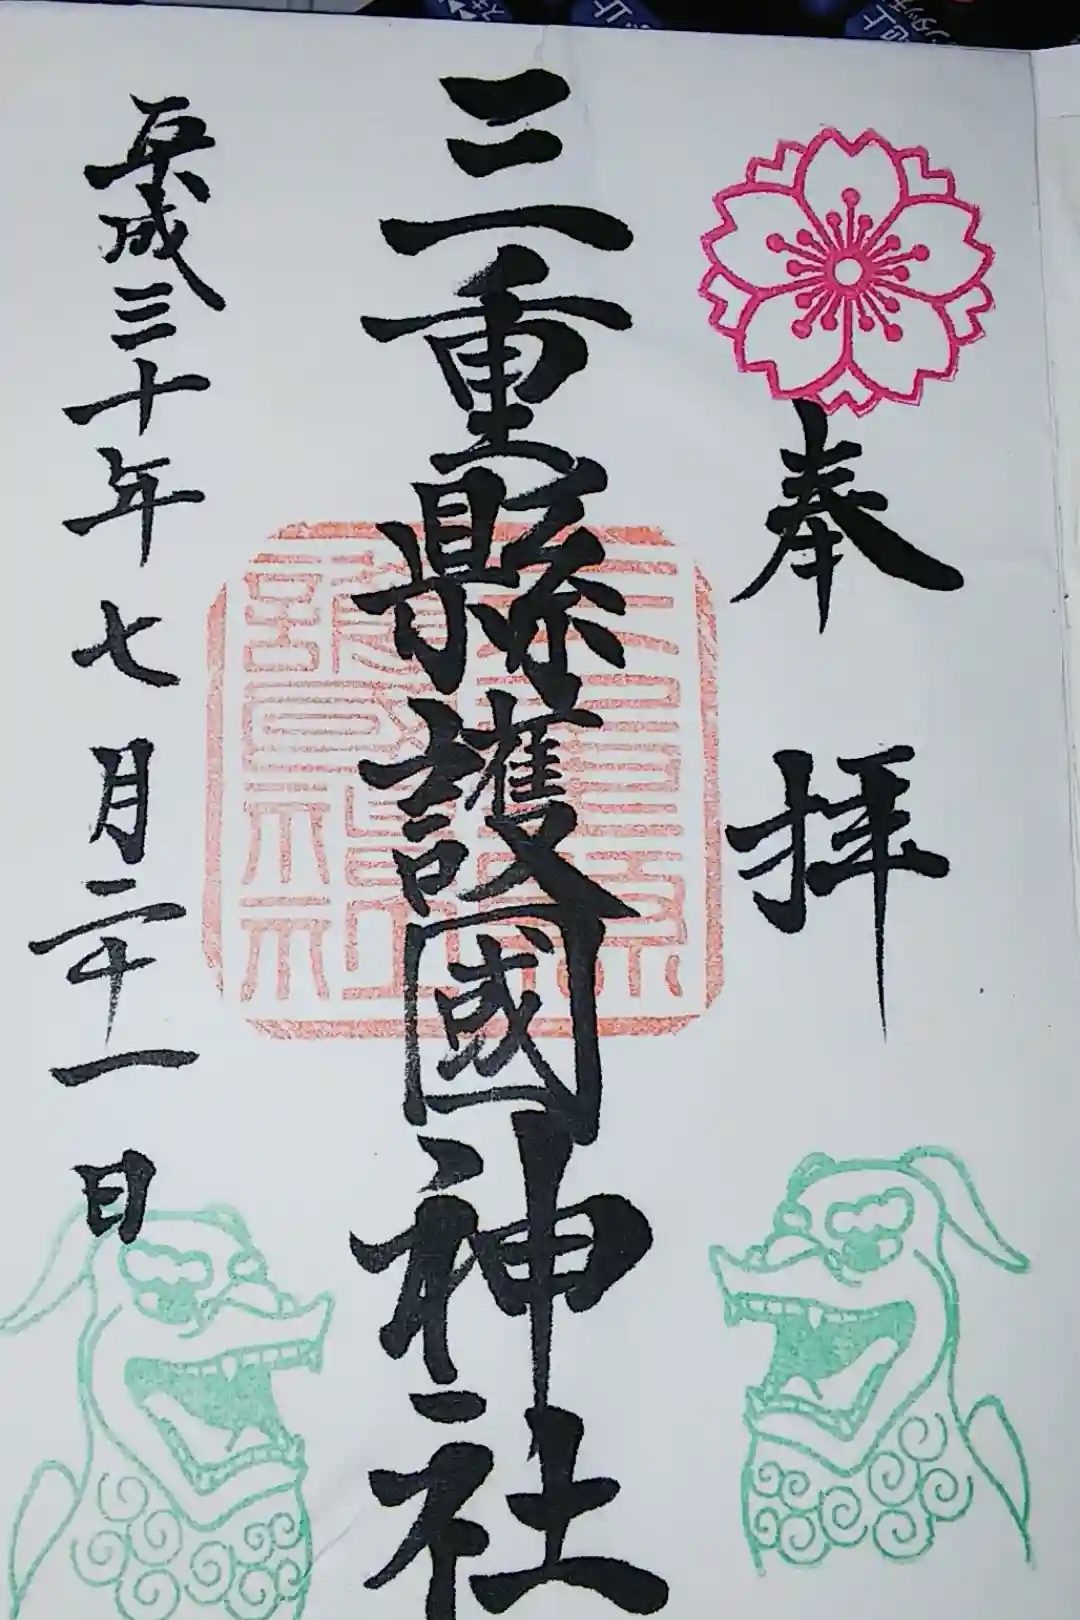 奉拝
三重縣護國神社
平成三十年七月二十一日
三重縣
護國神社